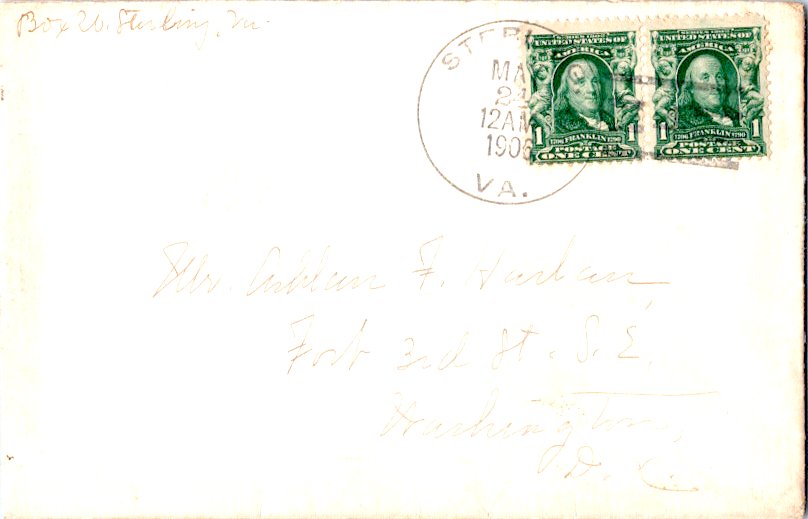 Box 26. Sterling, Va.
STERLING
MA
24
12AM
1906
VA.
SERIES 1902
UNITED STATES OF
AMERICA
1 1706 FRANKLIN 1790 1
POSTAGE
ONE CENT
SERIES 1902
UNITED STATES OF
AMERICA
1 1706 FRANKLIN 1790 1
POSTAGE
ONE CENT
Mr. F. Harlan,
3rd St. S. E.
Washington,
D. C.